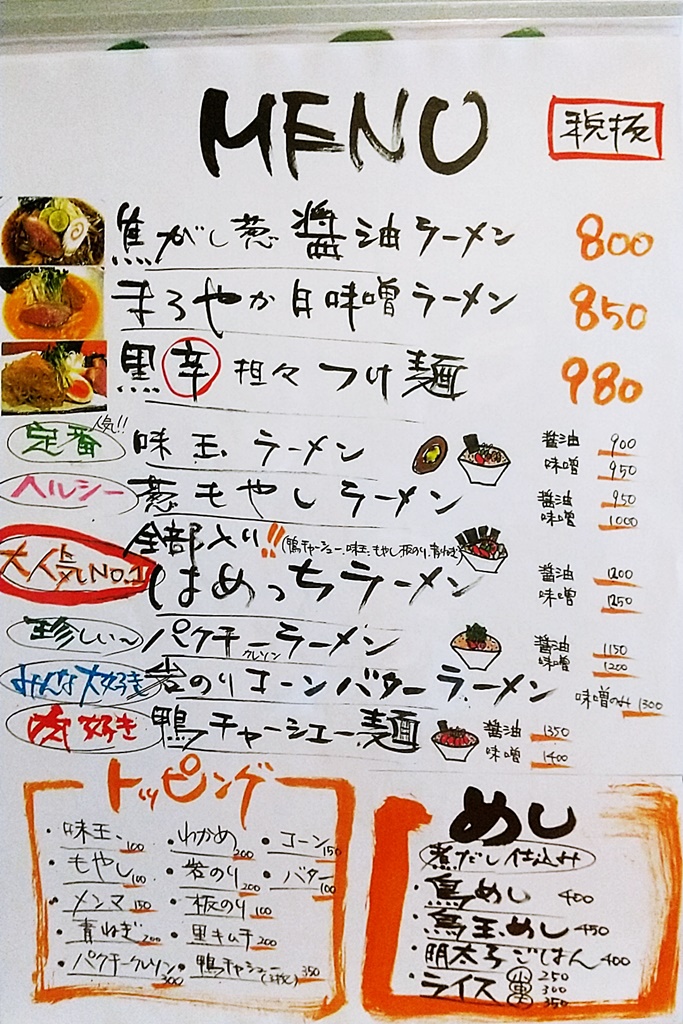 MENU
税抜
焦がし葱醤油ラーメン 800
まろやか白味噌ラーメン 850
黒辛担々つけ麺 980
定番 人気!! 味玉ラーメン 醤油 900
味噌 950
ヘルシー 葱もやしラーメン 醤油 950
味噌 1000
大人気No.1 全部入り!! (鴨チャーシュー、味玉、もやし、板のり、青ねぎ)
はめっちラーメン 醤油 1200
味噌 1250
珍しい〜 パクチーラーメン 醤油 1150
クレソン 味噌 1200
みんな大好き 岩のりコーンバターラーメン 味噌のみ 1300
肉好き 鴨チャーシュー麺 醤油 1350
味噌 1400
トッピング
・味玉 100 ・わかめ 200 ・コーン 150
・もやし 100 ・岩のり 200 ・バター 100
・メンマ 150 ・板のり 100
・青ねぎ 200 ・里キムチ 200
・パクチークレソン 300 ・鴨チャーシュー(3枚) 350
めし
煮だし仕込み
・鳥めし 400
・鳥玉めし 450
・明太子ごはん 400
・ライス 小 250
中 300
大 350